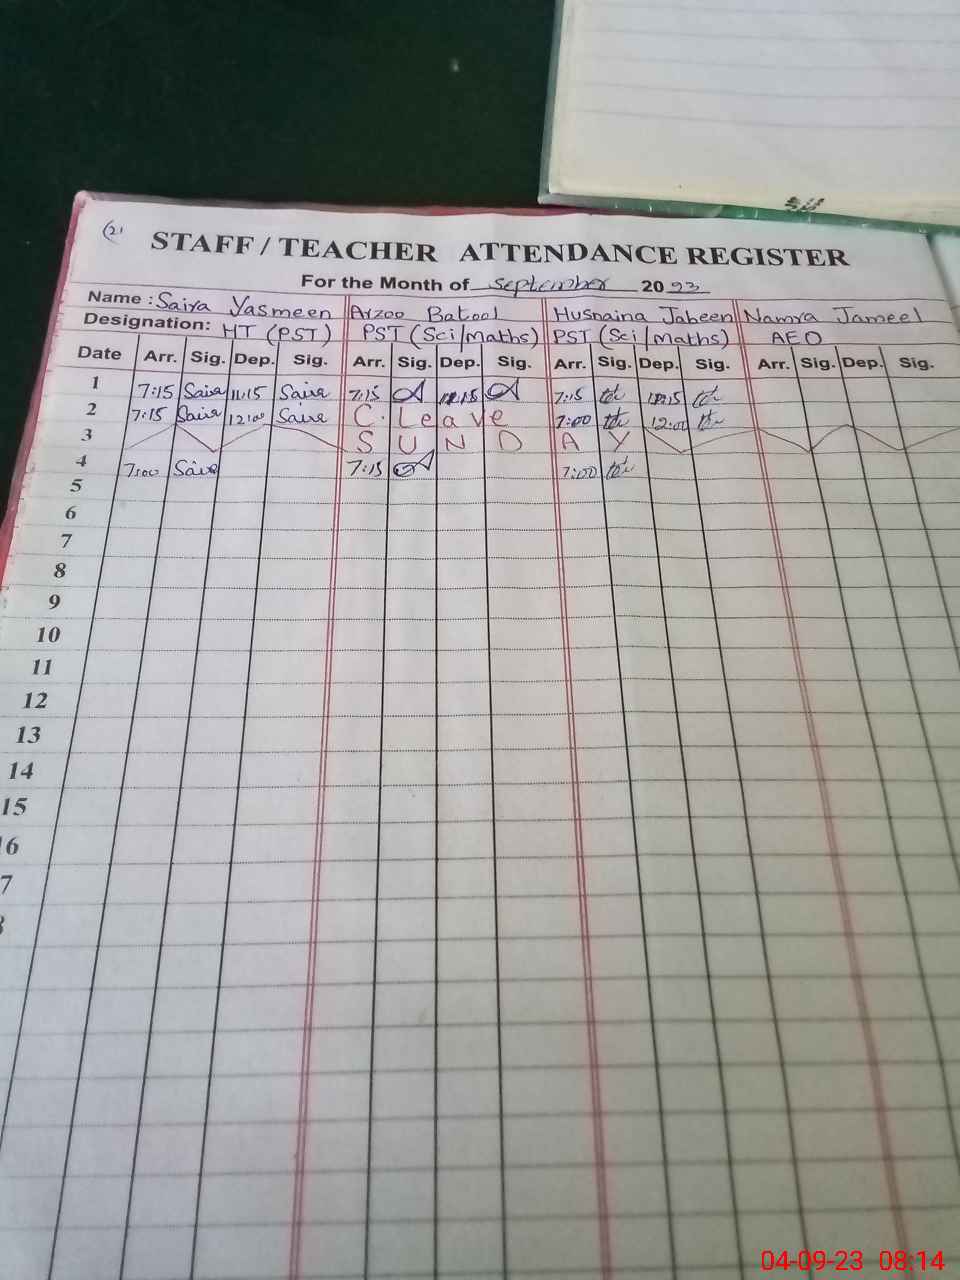 (21
STAFF / TEACHER ATTENDANCE REGISTER
For the Month of September 2023
Name : Saira Yasmeen Arzoo Batool Husnaina Jabeen Namra Jameel
Designation: HT (PST) PST (Sci/Maths) PST (Sci/Maths) AEO
Date Arr. Sig. Dep. Sig. Arr. Sig. Dep. Sig. Arr. Sig. Dep. Sig. Arr. Sig. Dep. Sig.
1 7:15 Saira 11:15 Saira 7:15 11:15 7:15 11:15
2 7:15 Saira 12:00 Saira C. Leave 7:00 12:00
3 S U N D A Y
4 7:00 Saira 7:15 7:00
5
6
7
8
9
10
11
12
13
14
15
16
7
04-09-23 08:14